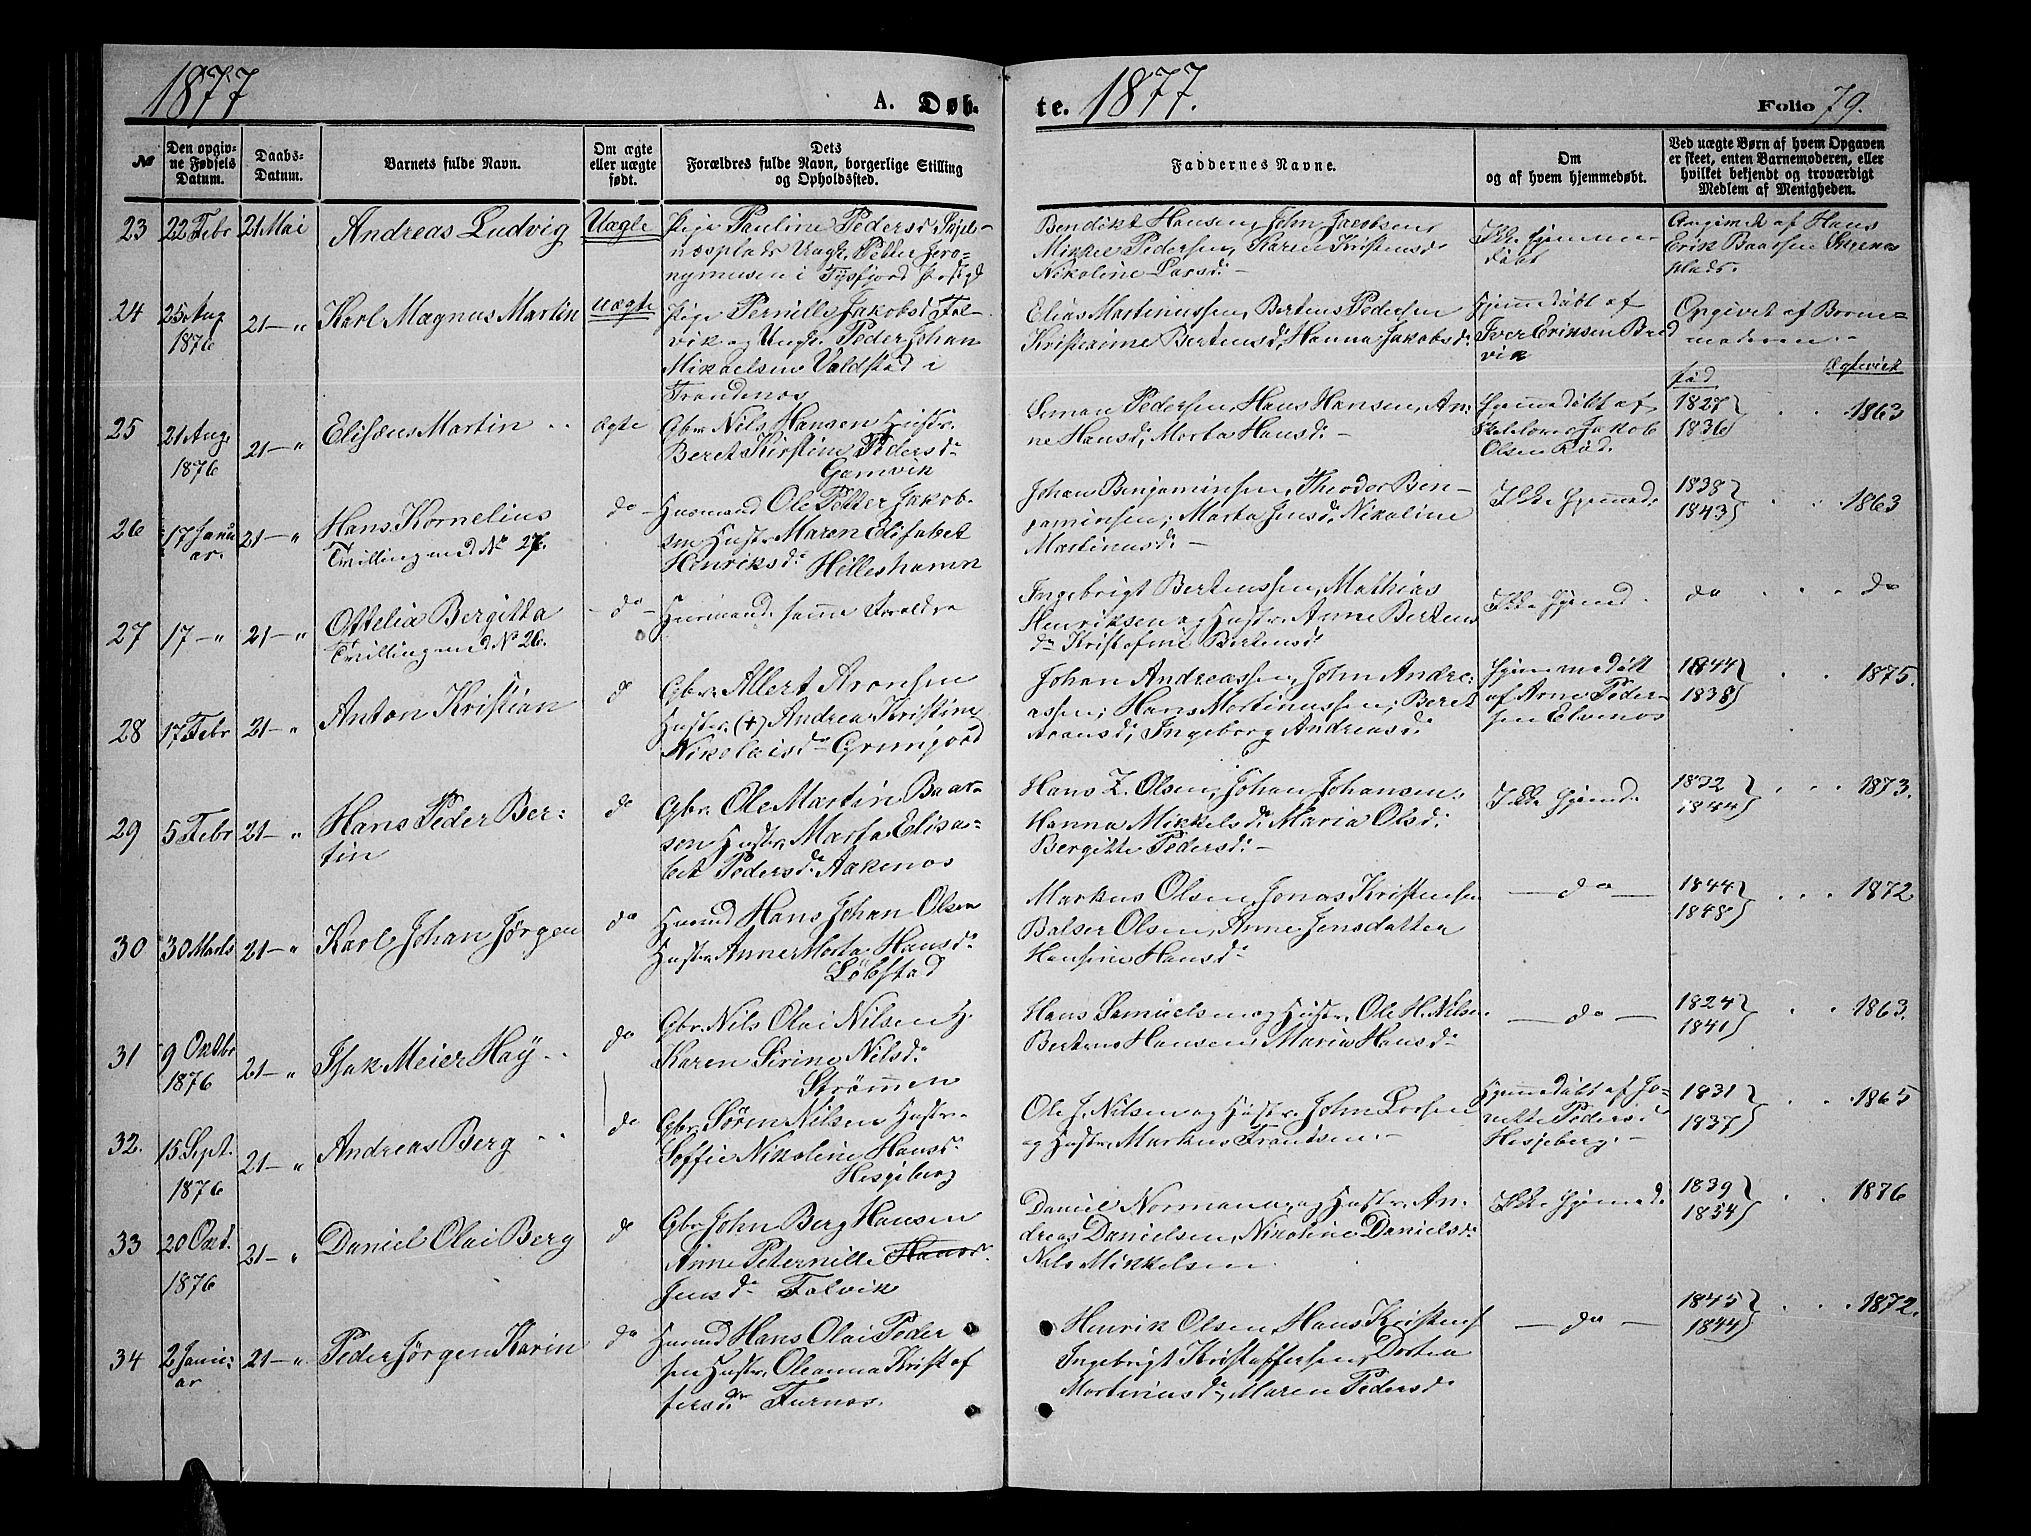 1877 A. Døb-
te. 1877. Folio 79.
№
Den opgiv-
ne Fødsels
Datum.
Daabs-
Datum.
Barnets fulde Navn.
Om ægte
eller uægte
født.
Dets
Forældres fulde Navn, borgerlige Stilling
og Opholdssted.
Faddernes Navne.
Om
og af hvem hjemmedøbt.
Ved uægte Børn af hvem Opgaven
er skeet, enten Barnemoderen, eller
hvilket bekjendt og troværdigt
Medlem af Menigheden.
23 22 Febr 21 Mai Andreas Ludvig Uægte
Pige Pauline Pedersd
Uagt. Petter Jero-
nymusen i Tysfjord
Bendikt Hansen, John Jacobsen
Mikkel Pedersen, Karen Kristensd
Nikoline Larsd. –
Ikke hjemme
døbt
Angivet af Hans
Erik Baarsen
plads.
24 25 Aug 1876 21 – „ Karl Magnus Martin uægte
Pige Pernille Jakobsd Fal-
vik og Ungk. Peder Johan
Mikaelsen Valdstad i
Trondenæs
Elias Martinussen, Bertens Pedersen
Kristianne Bertensd, Hanna Jakobsd.
Hjemmedøbt af
Iver Eriksen Bred
vik
Opgivet af Barne-
moderen. –
fød Ægteviet
25 21 Aug. 1876 21 – „ Elisæus Martin ægte
Gbr. Nils Hansen Hustr.
Beret Kirstine Pedersd.
Gamvik
Simon Pedersen, Hans Hansen, An-
ne Hansd, Marta Hansd. –
Hjemmedøbt af
Skolelærer Jakob
Olsen Rød.
1827
1836 1863
26 17 Janu
ar. 21 – „ Hans Kornelius
Tvilling med No 27. do –
Husmand Ole Petter Jakob-
sen Hustr. Maren Elisabet
Henriksd. Helleshamn
Johan Benjaminsen, Theodor Ben-
jaminsen, Marta Jensd. Nikoline
Martinusd.
Ikke hjemmed.
1838
1843 1863
27 17 – „ 21 – „ Ottelia Bergitta
Tvilling med No 26. – do –
Husmand. samme Foreldre
Ingebrigt Bertenssen, Mathias
Henriksen og Hustr. Anne Bertens
d. Kristofine Bertensd.
Ikke hjemmd.
do do
28 17 Febr 21 – „ Anton Kristian do
Gbr. Albert Aronsen
Hustr. (+) Andrea Kristine
Nikolaisd. Grunfjord
Johan Andreassen, John Andre-
assen, Hans Martinussen, Beret
Aronsd, Ingeborg Andreasd.
Hjemmedøbt
af Arne Peder-
sen Elvenæs
1844
1838 1875.
29 5 Febr 21 – „ Hans Peder Ber-
tin do
Gbr. Ole Martin Baar-
sen Hustr. Marta Elisa-
bet Pedersd. Aakenæs
Hans Z. Olsen, Johan Johansen,
Hanna Mikkelsd. Maria Olsd.
Bergitte Pedersd. –
Ikke hjemd.
1832
1844 1873.
30 30 Marts 21 – „ Karl Johan Jørgen do
Husmd Hans Johan Olsen
Hustr. Anne Marta Hansd.
Løbstad
Markus Olsen, Jonas Kristensen
Balser Olsen, Anne Jensdatter
Hansine Hansd.
– do –
1844
1848 1872
31 9 Oktbr 1876 21 – „ Isak Meier Høy do
Gbr. Nils Olai Nilsen H.
Karen Sirine Nilsd.
Strømmen
Hans Samuelsen og Hustr. Ole H. Nilsen
Bertens Hansen, Maria Hansd.
– do –
1824
1841 1863.
32. 15 Sept. 1876 21 – „ Andreas Berg do
Gbr. Søren Nilsen Hustr.
Soffie Nikoline Hansd.
Hesjeberg
Ole J. Nilsen og Hustr. John Larsen
og Hustr. Markus Frantsen. –
Hjemmedøbt af
Pedersd
Hesjeberg. –
1831
1837 1865
33 20 Okt. 1876 21 – „ Daniel Olai Berg do
Gbr. John Berg Hansen
Anne Pernille Hans
Jensd. Falvik
Daniel Normann og Hustr. An-
dreas Danielsen, Nikoline Danielsd.
Nils Mikkelsen
Ikke hjemmed.
1839
1854 1876
34 2 Janu-
ar 21 – „ Peder Jørgen Karin do
Husmd Hans Olai Peder
sen Hustr. Oleanna Kristof
fersd. Furnæs
Henrik Olsen, Hans Kristens
Ingebrigt Kristoffersen, Dortea
Martinusd, Maren Pedersd
– do –
1845
1844 1872.